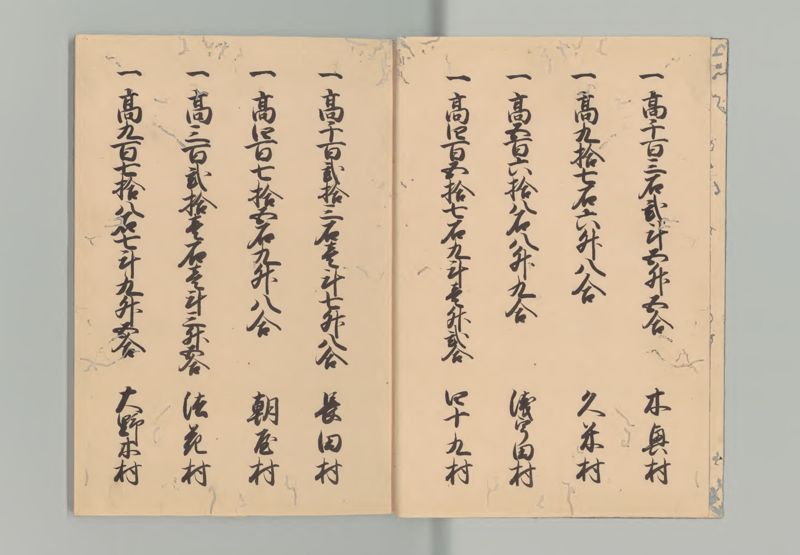 一高千百三石弐斗四升四合 木興村
一高九拾七石六升八合 久米村
一高四百六拾八石八升九合 守田村
一高四百四拾七石九斗壱升弐合 四十九村
一高千百弐拾三石壱斗七升八合 長田村
一高四百七拾四石九升八合 朝屋村
一高三百弐拾壱石壱斗三升四合 法花村
一高九百七拾八石七斗九升四合 大野木村